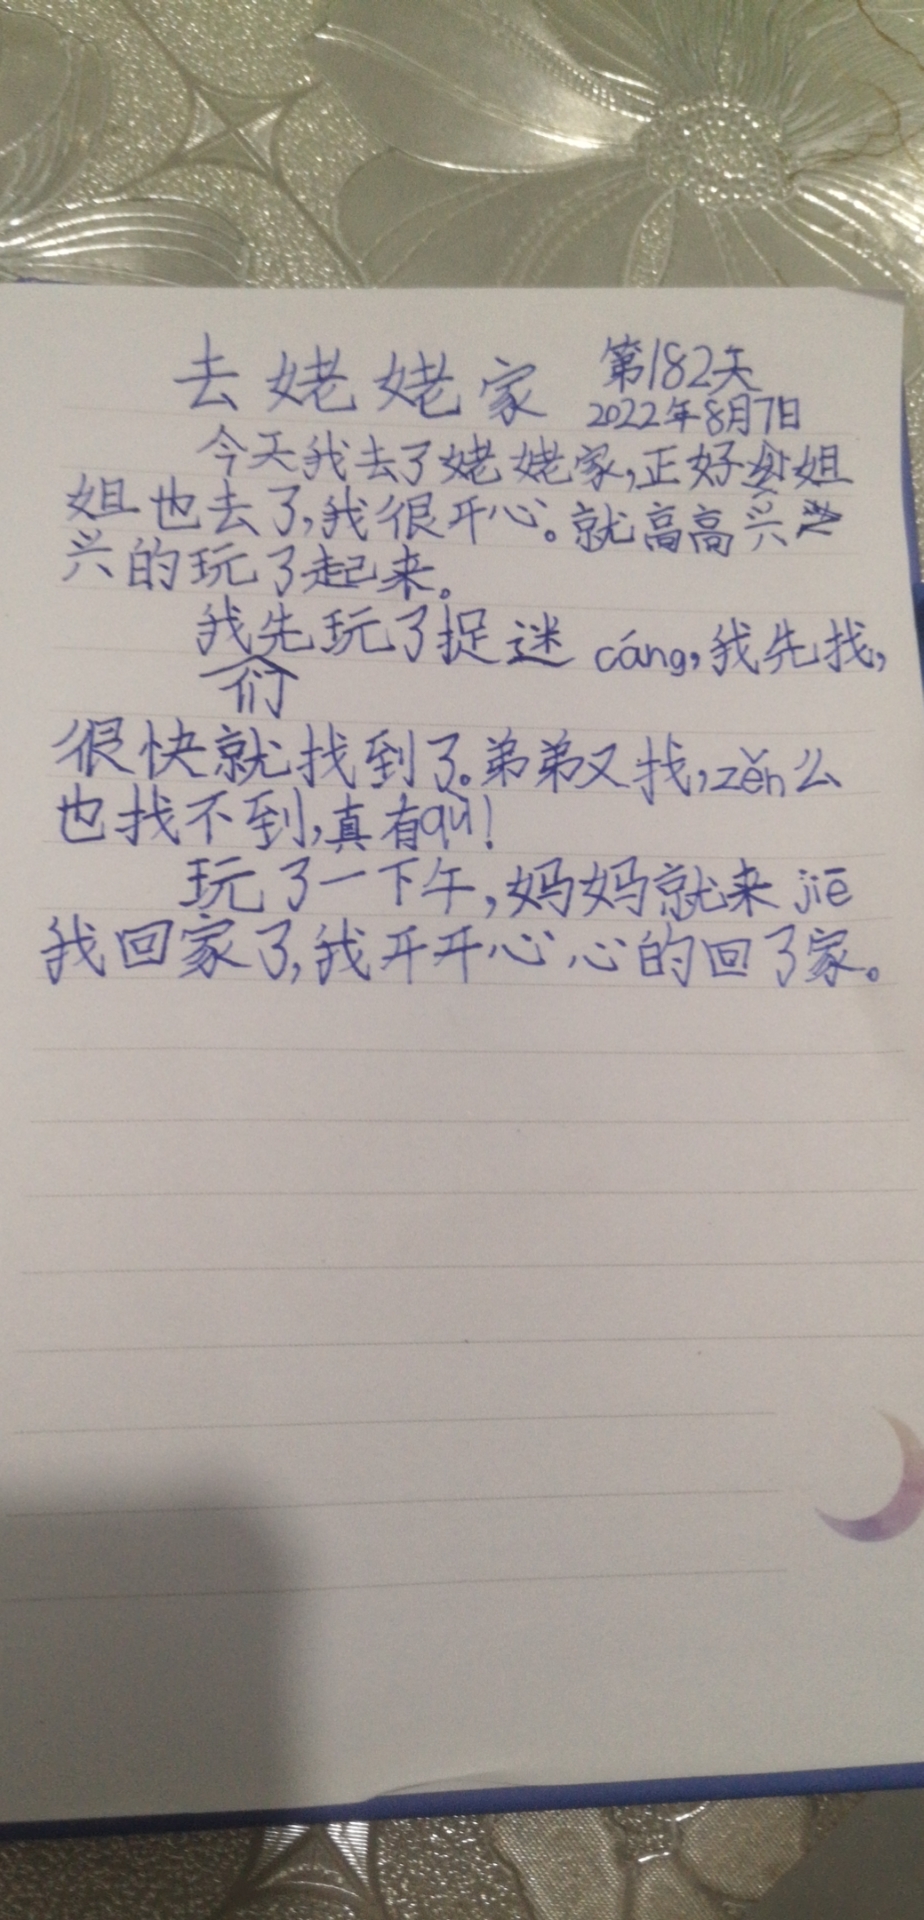 去姥姥家 第182天
2022年8月7日
今天我去了姥姥家,正好姐
姐也去了,我很开心。就高高兴
兴的玩了起来。
我们先玩了捉迷cáng,我先找,
很快就找到了。弟弟又找,zěn么
也找不到,真有qù!
玩了一下午,妈妈就来jiē
我回家了,我开开心心的回了家。